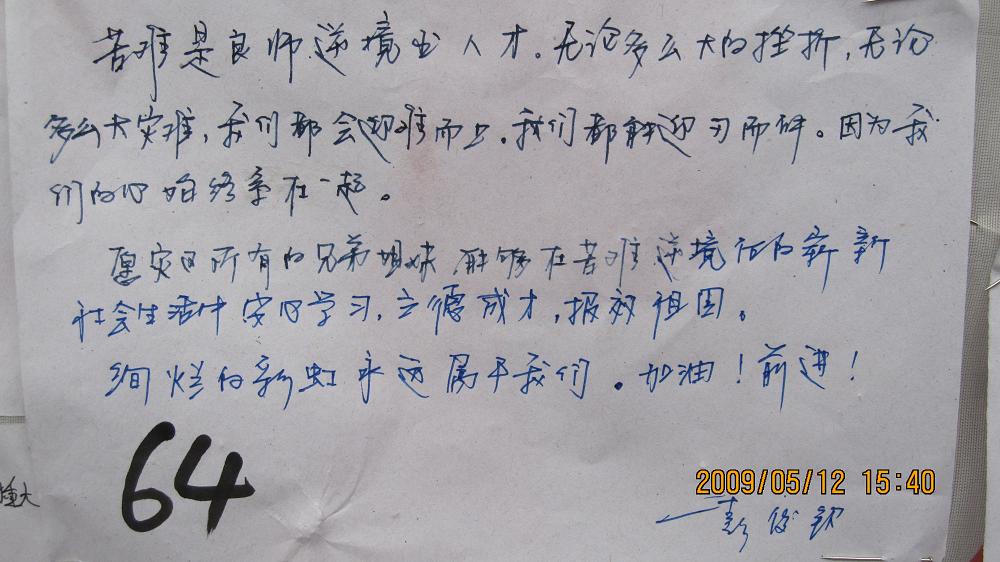 苦难是良师逆境出人才。无论多么大的挫折,无论
多么大灾难,我们都会迎难而上。我们都能迎刃而解。因为我
们的心始终牵在一起。
愿灾区所有的兄弟姐妹能够在苦难逆境化的新新
社会生活中安心学习,立德成才,报效祖国。
绚烂的彩虹永远属于我们。加油!前进!
64
2009/05/12 15:40